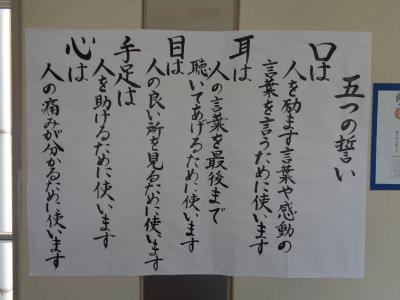 五つの誓い
口は
人を励ます言葉や感動の
言葉を言うために使います
耳は
人の言葉を最後まで
聴いてあげるために使います
目は
人の良い所を見るために使います
手足は
人を助けるために使います
心は
人の痛みが分かるために使います